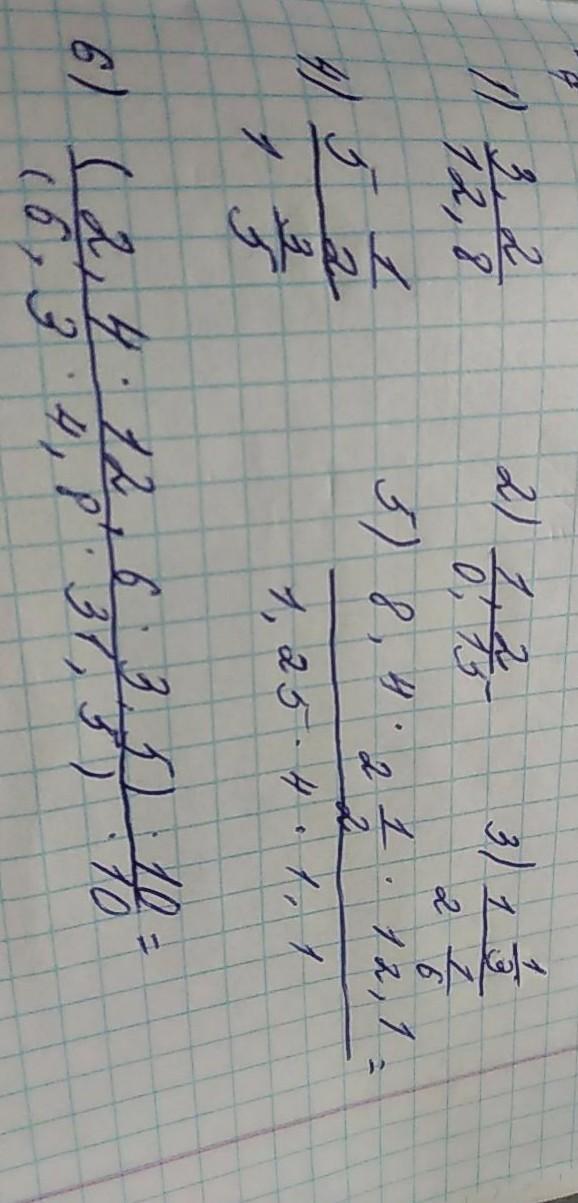 1) 3,2/12,8 2) 1,2/0,15 3) 1 1/3 / 2 1/6
4) 5 1/2 / 1 3/5 5) 8,4 · 2 1/2 · 12,1 =
1,25 · 4 · 1,1
6) (2,4 · 12,6 · 3,5) · 10 =
(6,3 · 4,8 · 31,5) · 10